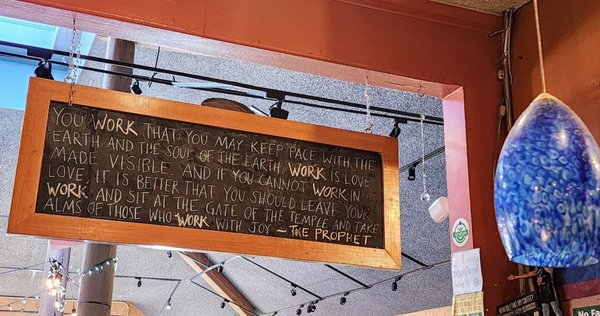 YOU WORK THAT YOU MAY KEEP PACE WITH THE
EARTH AND THE SOUL OF THE EARTH. WORK IS LOVE
MADE VISIBLE. AND IF YOU CANNOT WORK IN
LOVE, IT IS BETTER THAT YOU SHOULD LEAVE YOUR
WORK AND SIT AT THE GATE OF THE TEMPLE AND TAKE
ALMS OF THOSE WHO WORK WITH JOY - THE PROPHET